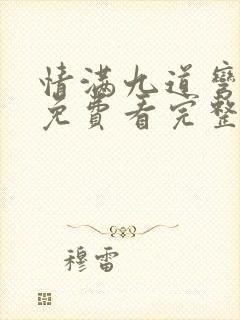 情满九道弯
免费看完整
穆雷